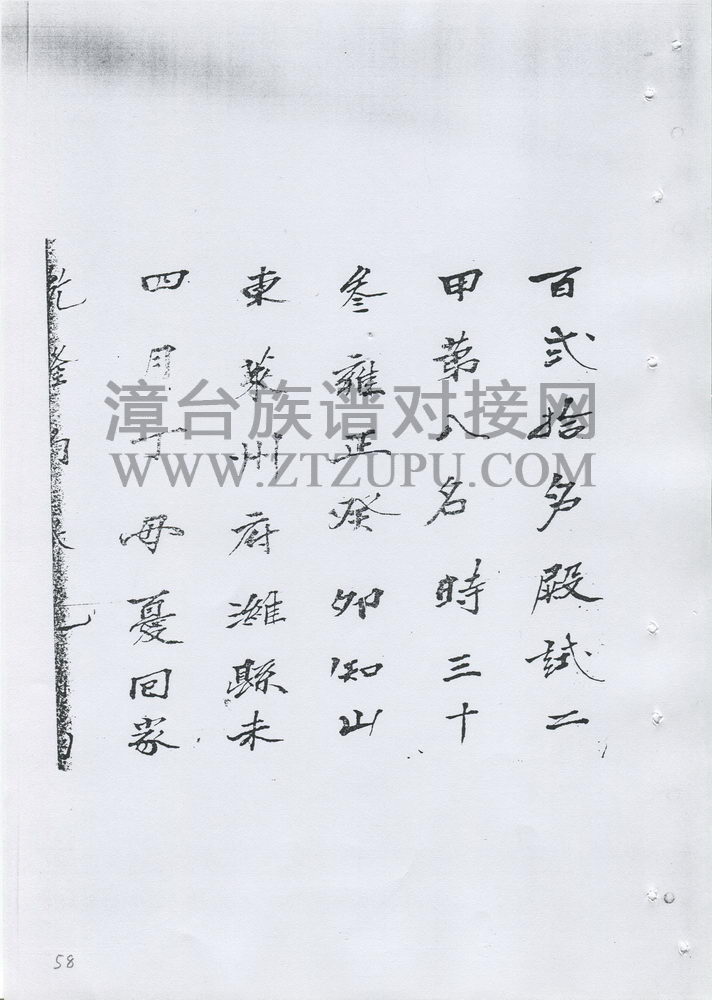 百弍拾名殿試二
甲第八名時三十
叁雍正癸卯知山
東萊州府濰縣未
四月丁母憂回家
漳台族谱对接网
WWW.ZTZUPU.COM
58